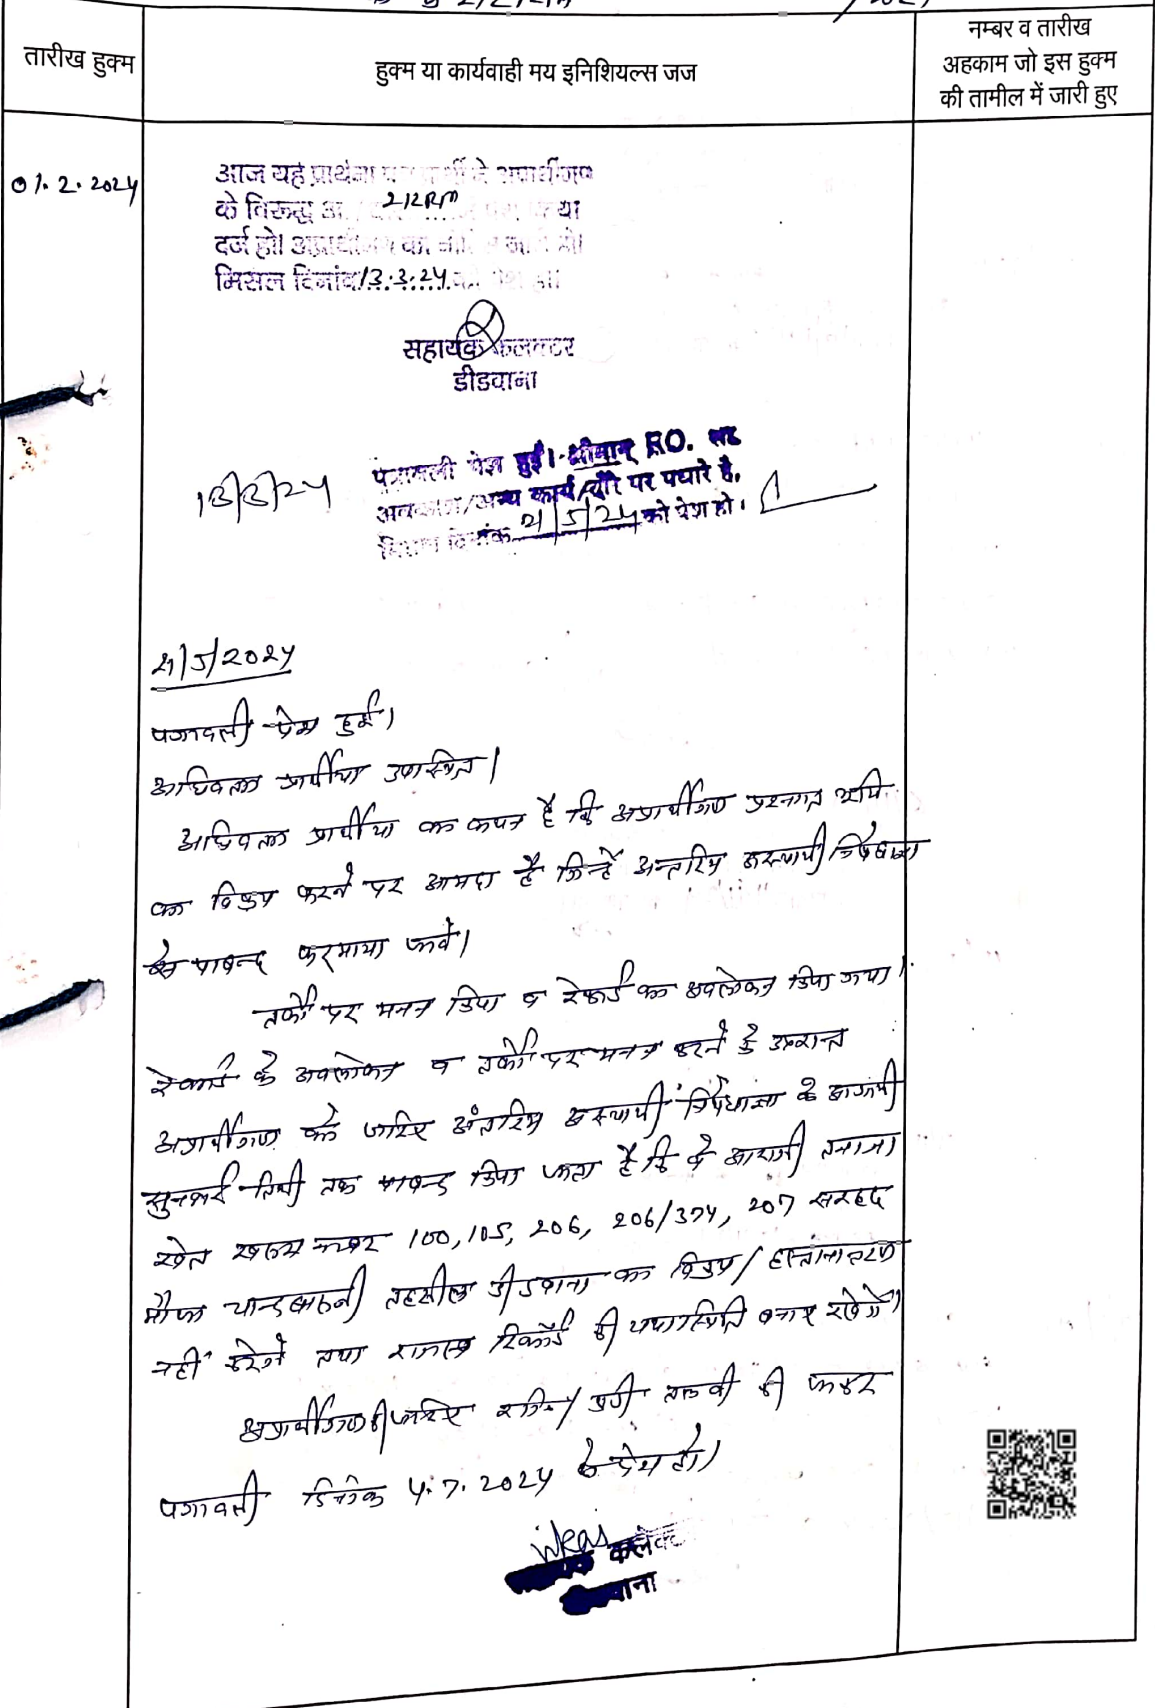 तारीख हुक्म
हुक्म या कार्यवाही मय इनिशियल्स जज
नम्बर व तारीख
अहकाम जो इस हुक्म
की तामील में जारी हुए
01.2.2024
आज यह प्रार्थना
के विरूद्ध 212 RM
दर्ज हो। अप्रार्थीगण
मिसल दिनांक 13.3.24
सहायक कलक्टर
डीडवाना
13/3/24
पत्रावली पेश हुई। श्रीमान् R.O. सा.
अवकाश/अन्य कार्य/दौरे पर पधारे है,
दिनांक 21/5/24 को पेश हो।
21/5/2024
पत्रावली पेश हुई।
अधिवक्ता प्रार्थीया उपस्थित।
अधिवक्ता प्रार्थीया का कथन है कि अप्रार्थीगण प्रश्नगत भूमि
का विक्रय करने पर आमदा है जिन्हें अन्तरिम अस्थायी निषेधाज्ञा
से पाबन्द फरमाया जावे।
तर्कों पर मनन किया व रेकार्ड का अवलोकन किया गया।
रेकार्ड के अवलोकन व तर्कों पर मनन करने के उपरान्त
अप्रार्थीगण को जरिए अंतरिम अस्थायी निषेधाज्ञा के आगामी
सुनवाई तिथी तक पाबन्द किया जाता है कि वे आराजी तनाजा
खेत खसरा नम्बर 100, 105, 206, 206/374, 207 सरहद
मौजा तहसील डीडवाना का विक्रय/हस्तान्तरण
नहीं करेंगे तथा राजस्व रिकॉर्ड की यथास्थिति बनाए रखेंगे।
अप्रार्थीगण की जरिए तलबी की जाकर
पत्रावली दिनांक 4.7.2024 को पेश हो।
कलेक्टर